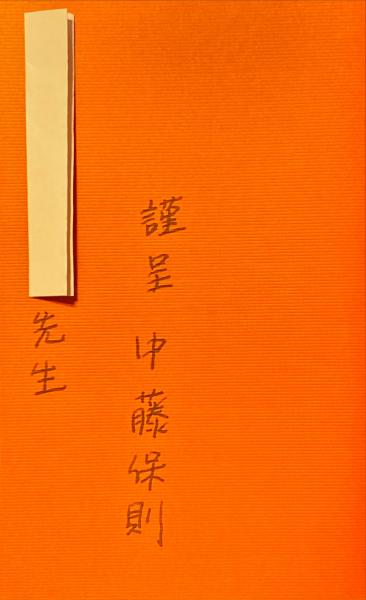 謹呈 中藤保則
先生